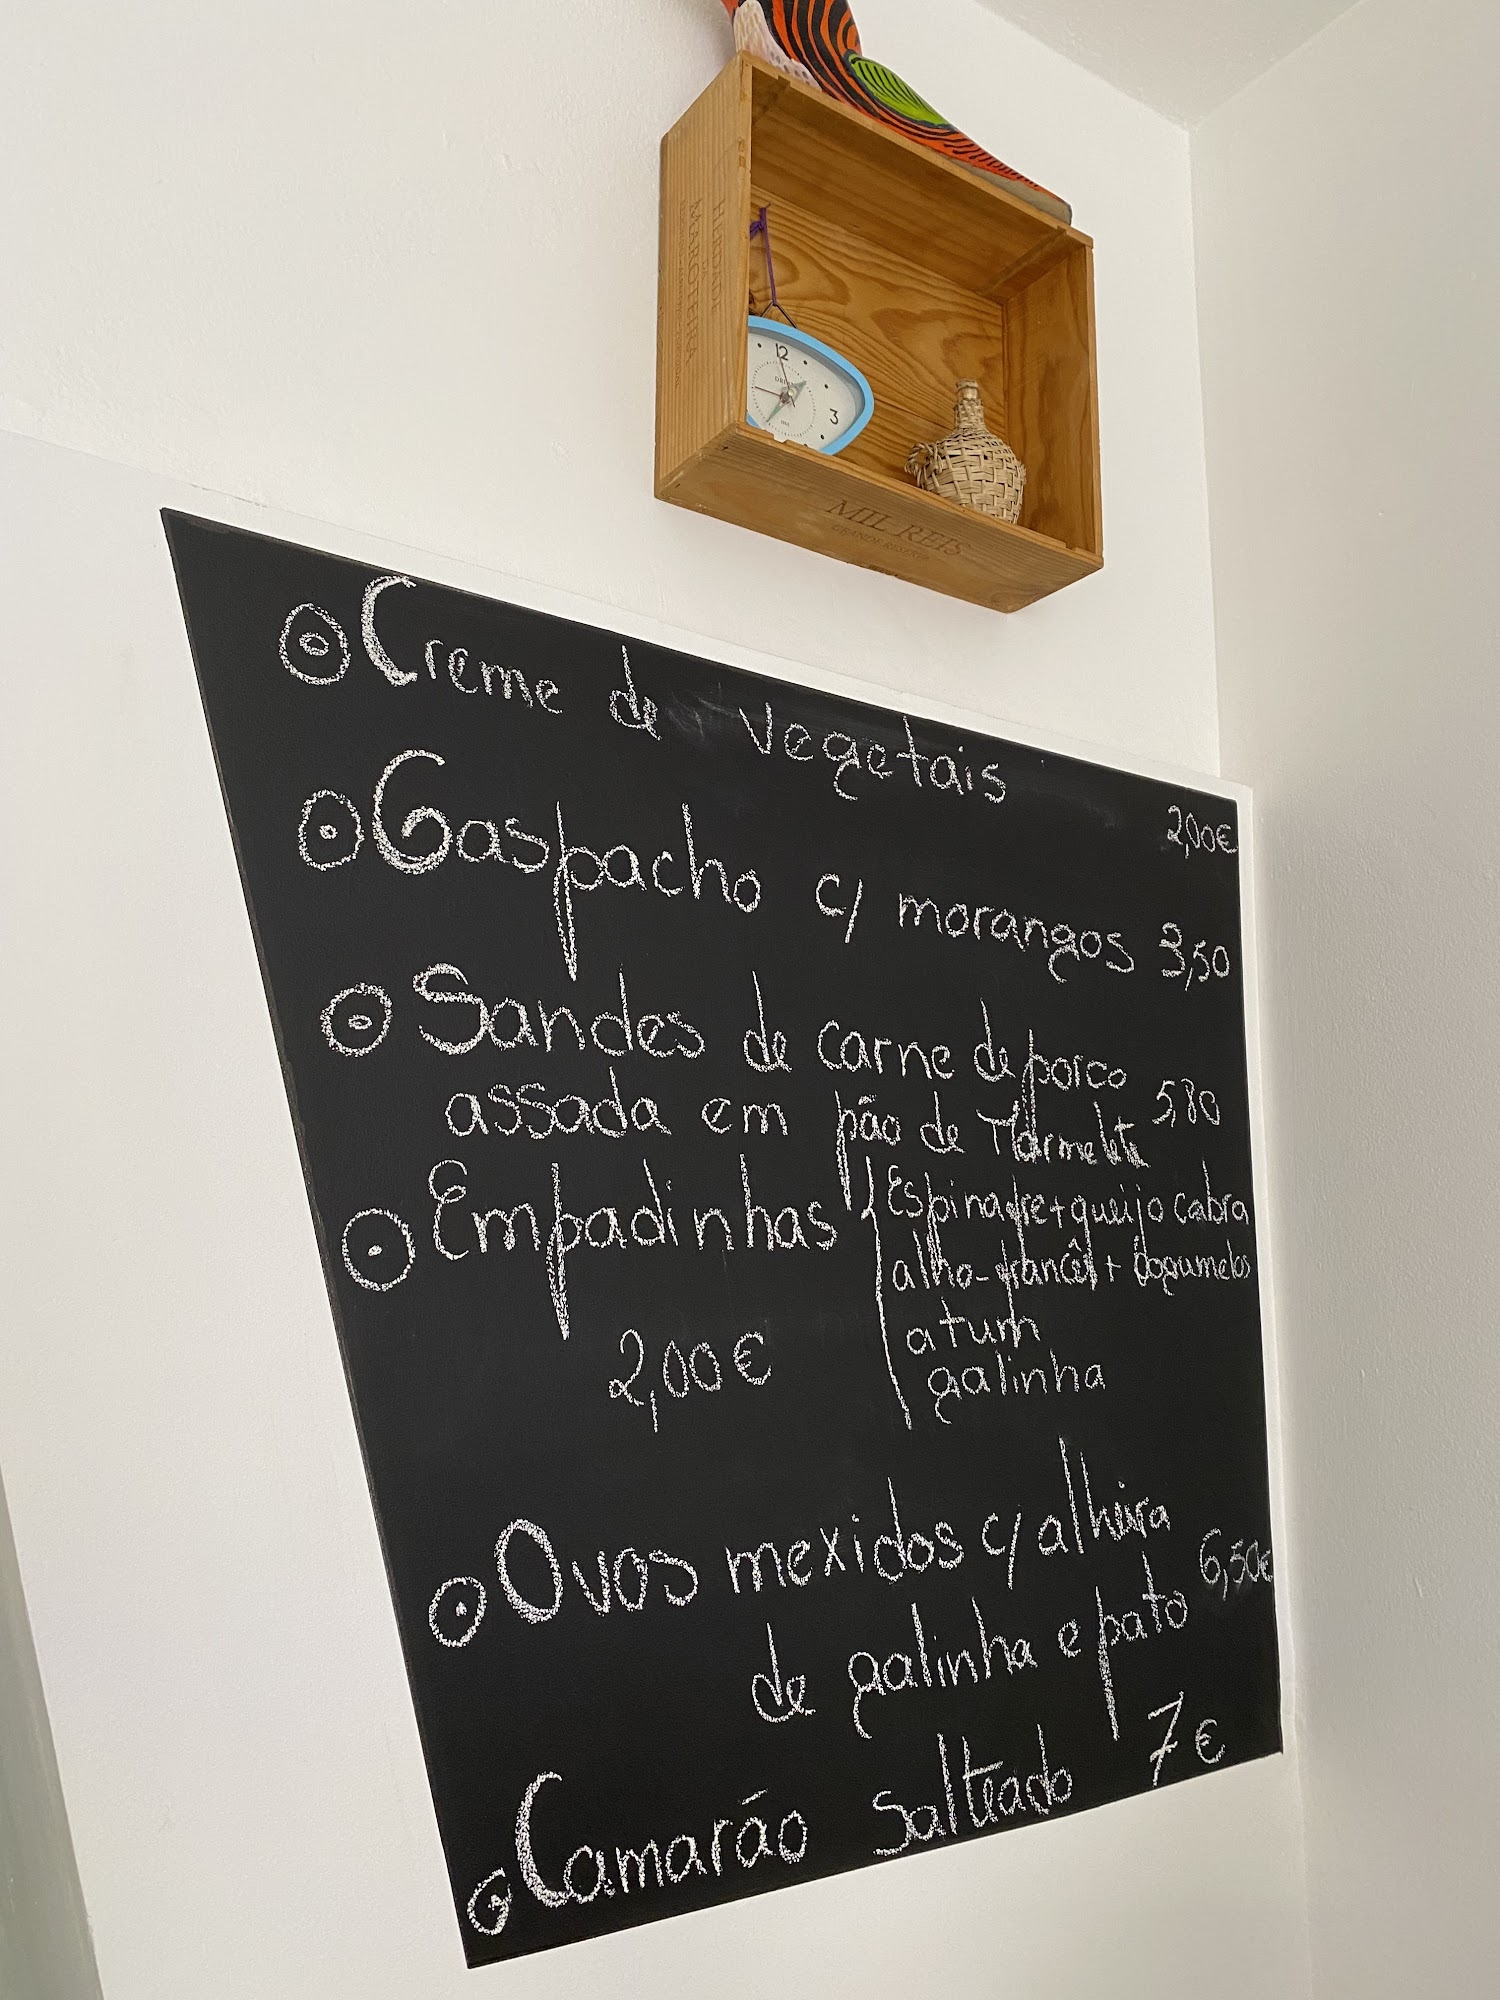 HERDADE
MAROTEIRA
12
3
MIL REIS
GRANDE RESERVA
Creme de vegetais
2,00€
Gaspacho c/ morangos 3,50
Sandes de carne de porco
assada em pão de Marmelete 5,80
Empadinhas
Espinafre+queijo cabra
alho-francês + cogumelos
atum
galinha
2,00€
Ovos mexidos c/ alheira
de galinha e pato 6,50€
Camarão Salteado 7€